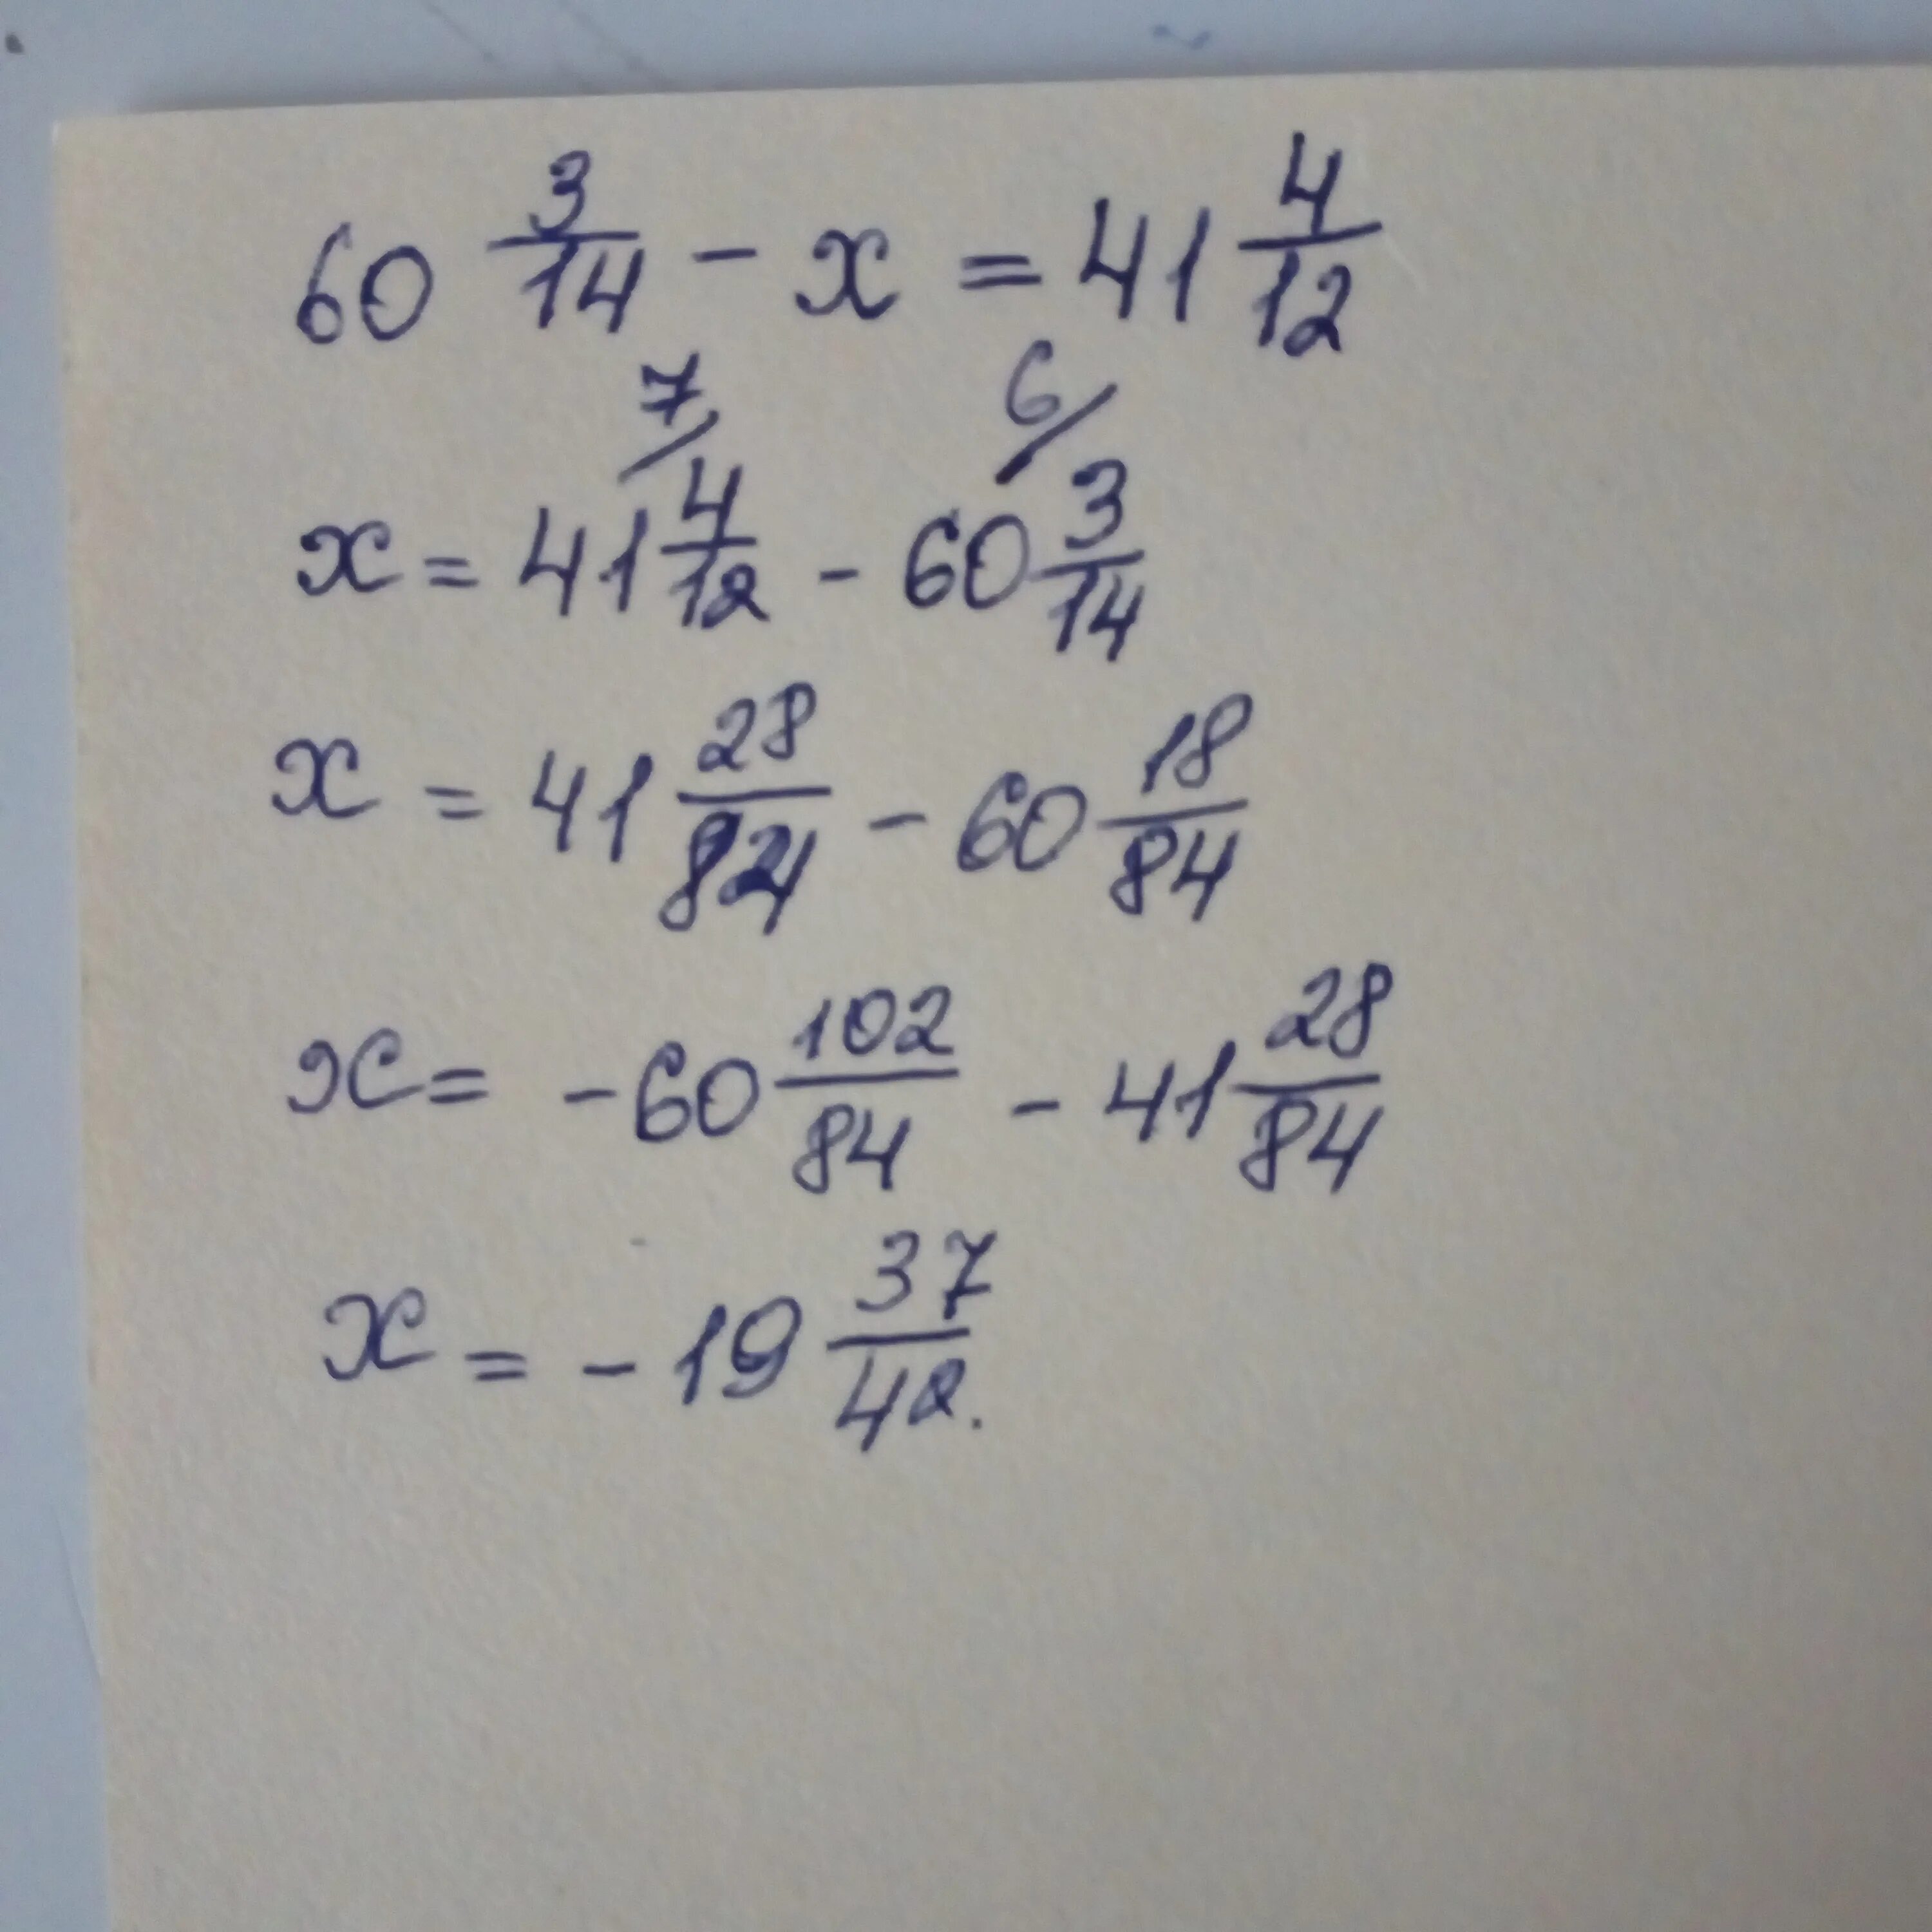 60 3/14 - x = 41 4/12
x = 41 4/12 7/ - 60 3/14 6/
x = 41 28/84 - 60 18/84
x = - 60 102/84 - 41 28/84
x = - 19 37/42.